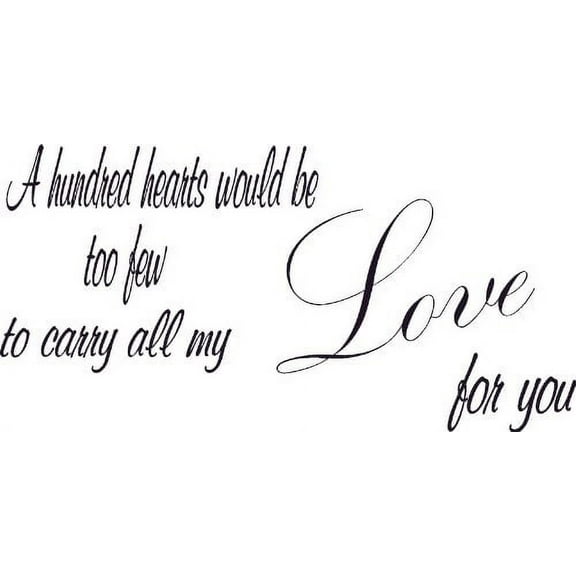 A hundred hearts would be
too few
to carry all my
Love
for you